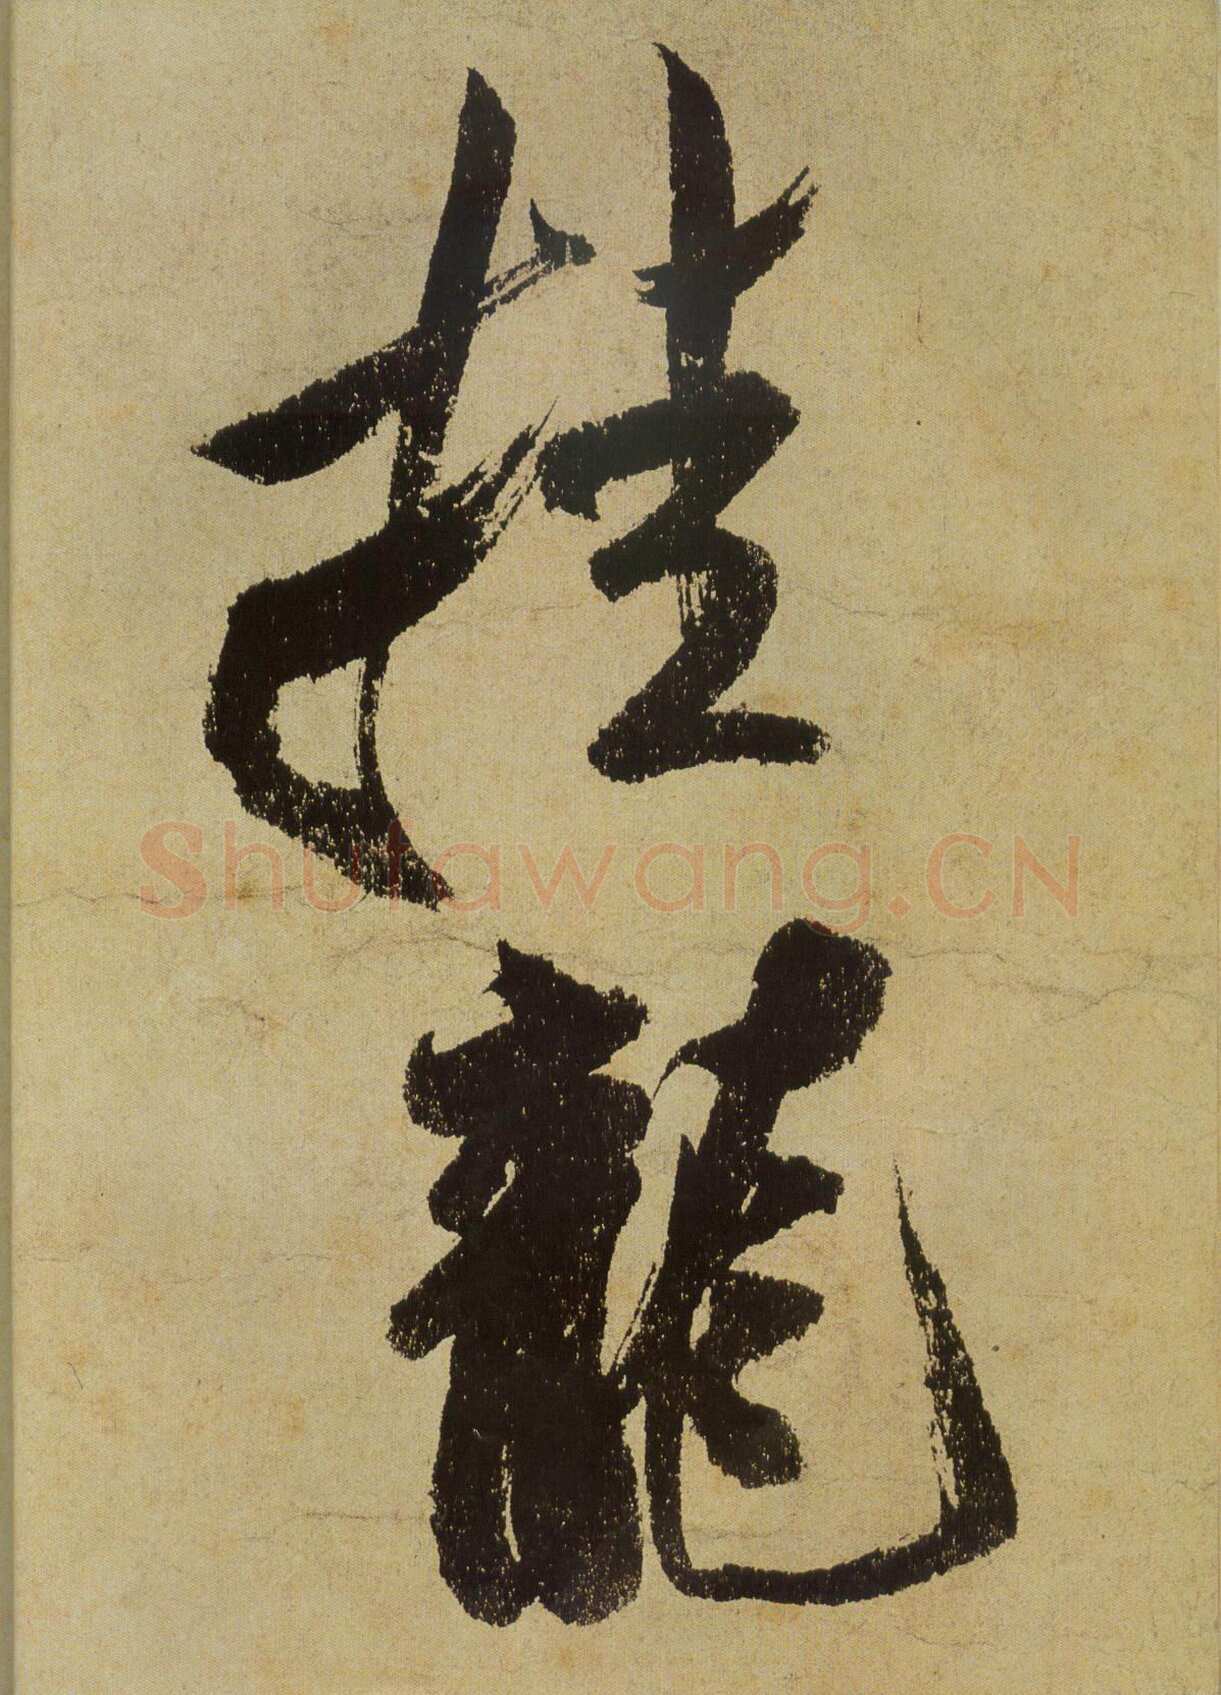 挂
龍
Shufawang.CN